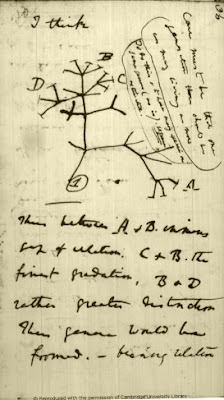 36
I think
Case must be that one
generation then should be
as many living as now
To do this & to have many species in
same genus (as is) requires
extinction
B
C
D
A
1
Thus between A & B. immense
gap of relation. C & B. the
finest gradation, B & D
rather greater distinction
Thus genera would be
formed. — bearing relation
© Reproduced with the permission of Cambridge University Library